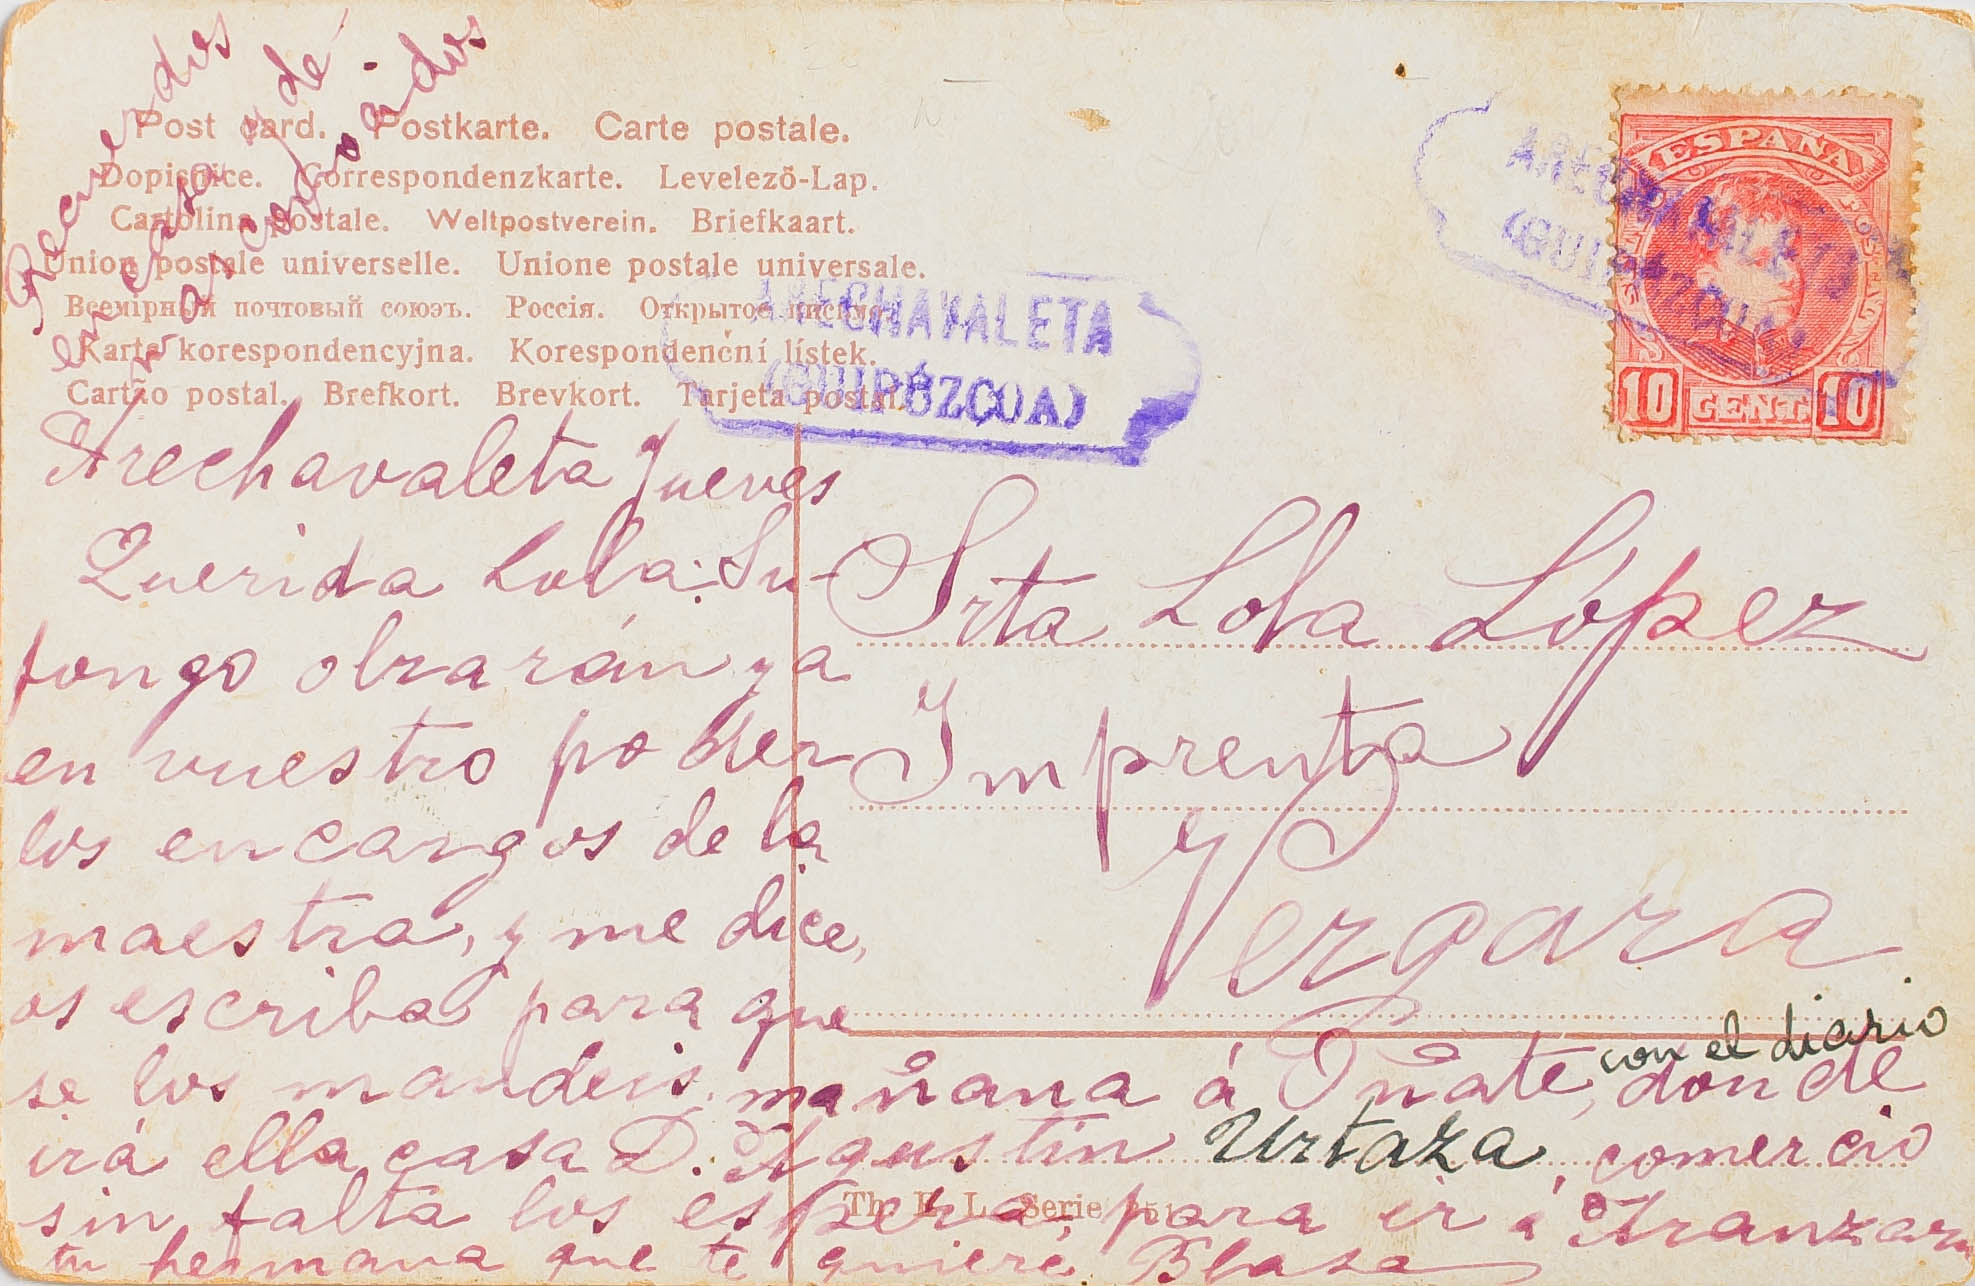 Recuerdos
en casa y de
mos encargados
Post card. Postkarte. Carte postale.
Dopisnice. Correspondenzkarte. Levelező-Lap.
Cartolina postale. Weltpostverein. Briefkaart.
Union postale universelle. Unione postale universale.
Всемірный почтовый союзъ. Россія. Открытое письмо.
Karta korespondencyjna. Korespondenční lístek.
Cartão postal. Brefkort. Brevkort. Tarjeta postal.
ARECHAVALETA
(GUIPÚZCOA)
ARECHAVALETA
(GUIPÚZCOA)
ESPAÑA
10 CENT. 10
Arechavaleta Jueves
Querida Lola: Su-
pongo obrarán ya
en vuestro poder
los encargos de la
maestra, y me dice,
os escriba para que
se los mandeis, mañana á Oñate, donde
con el diario
irá ella, casa D. Agustín Urtaza, comercio
sin falta los espera, para ir á Aranzazu
tu hermana que te quiere Blasa
Srta Lola López
Imprenta
Vergara
Th. E. L. Serie